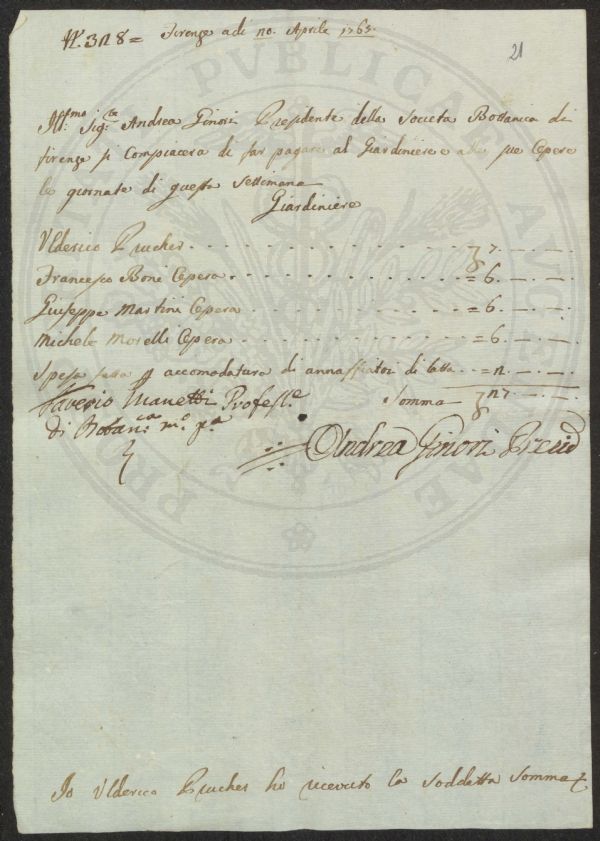 N. 328 = Firenze adi 20. Aprile 1765.
21
Ill:mo Sig:re Andrea Ginori Presidente della Società Bottanica di
firenze si Compiacera di far pagare al Giardiniere e alle sue Opere
le giornate di questa Settimana
Giardiniere
Ulderico Prucher - - - - - - 7. — —
Francesco Boni Opera - - - - = 6. — —
Giuseppe Martini Opera - - - - = 6. — —
Michele Morelli Opera - - - - = 6. — —
Spesa fatta p accomodatura di annaffiatoi di latta - = 2. — —
Saverio Manetti Profess.e Somma 27. — —
di Botan:ca m:o p:a
Andrea Ginori Presid
Io Ulderico Prucher ho ricevuto la Soddetta Somma
PVBLICAE